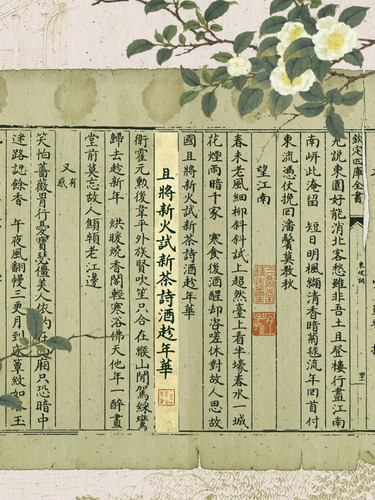 欽定四庫全書
東坡詞
尤說東園好能消北客愁雖非吾土且登樓行盡江南
南岍此淹留 短日明楓纈清香暗菊毬流年回首付
東流憑仗挽回潘鬢莫教秋
望江南
春未老風細柳斜斜試上超然臺上看半壕春水一城
花煙雨暗千家 寒食後酒醒却咨嗟休對故人思故
國且將新火試新茶詩酒趁年華
且將新火試新茶詩酒趁年華
衛霍元勲後韋平外族賢吹笙只合在緱山閒駕綵鸞
歸去趁新年 烘暖燒香閣輕寒浴佛天他年一醉畫
堂前莫忘故人顦顇老江邊
又 有感
笑怕薔薇罥行憂寶瑟僵美人依約在廂只恐暗中
迷路認餘香 午夜風翻幔三更月到床簟紋如玉